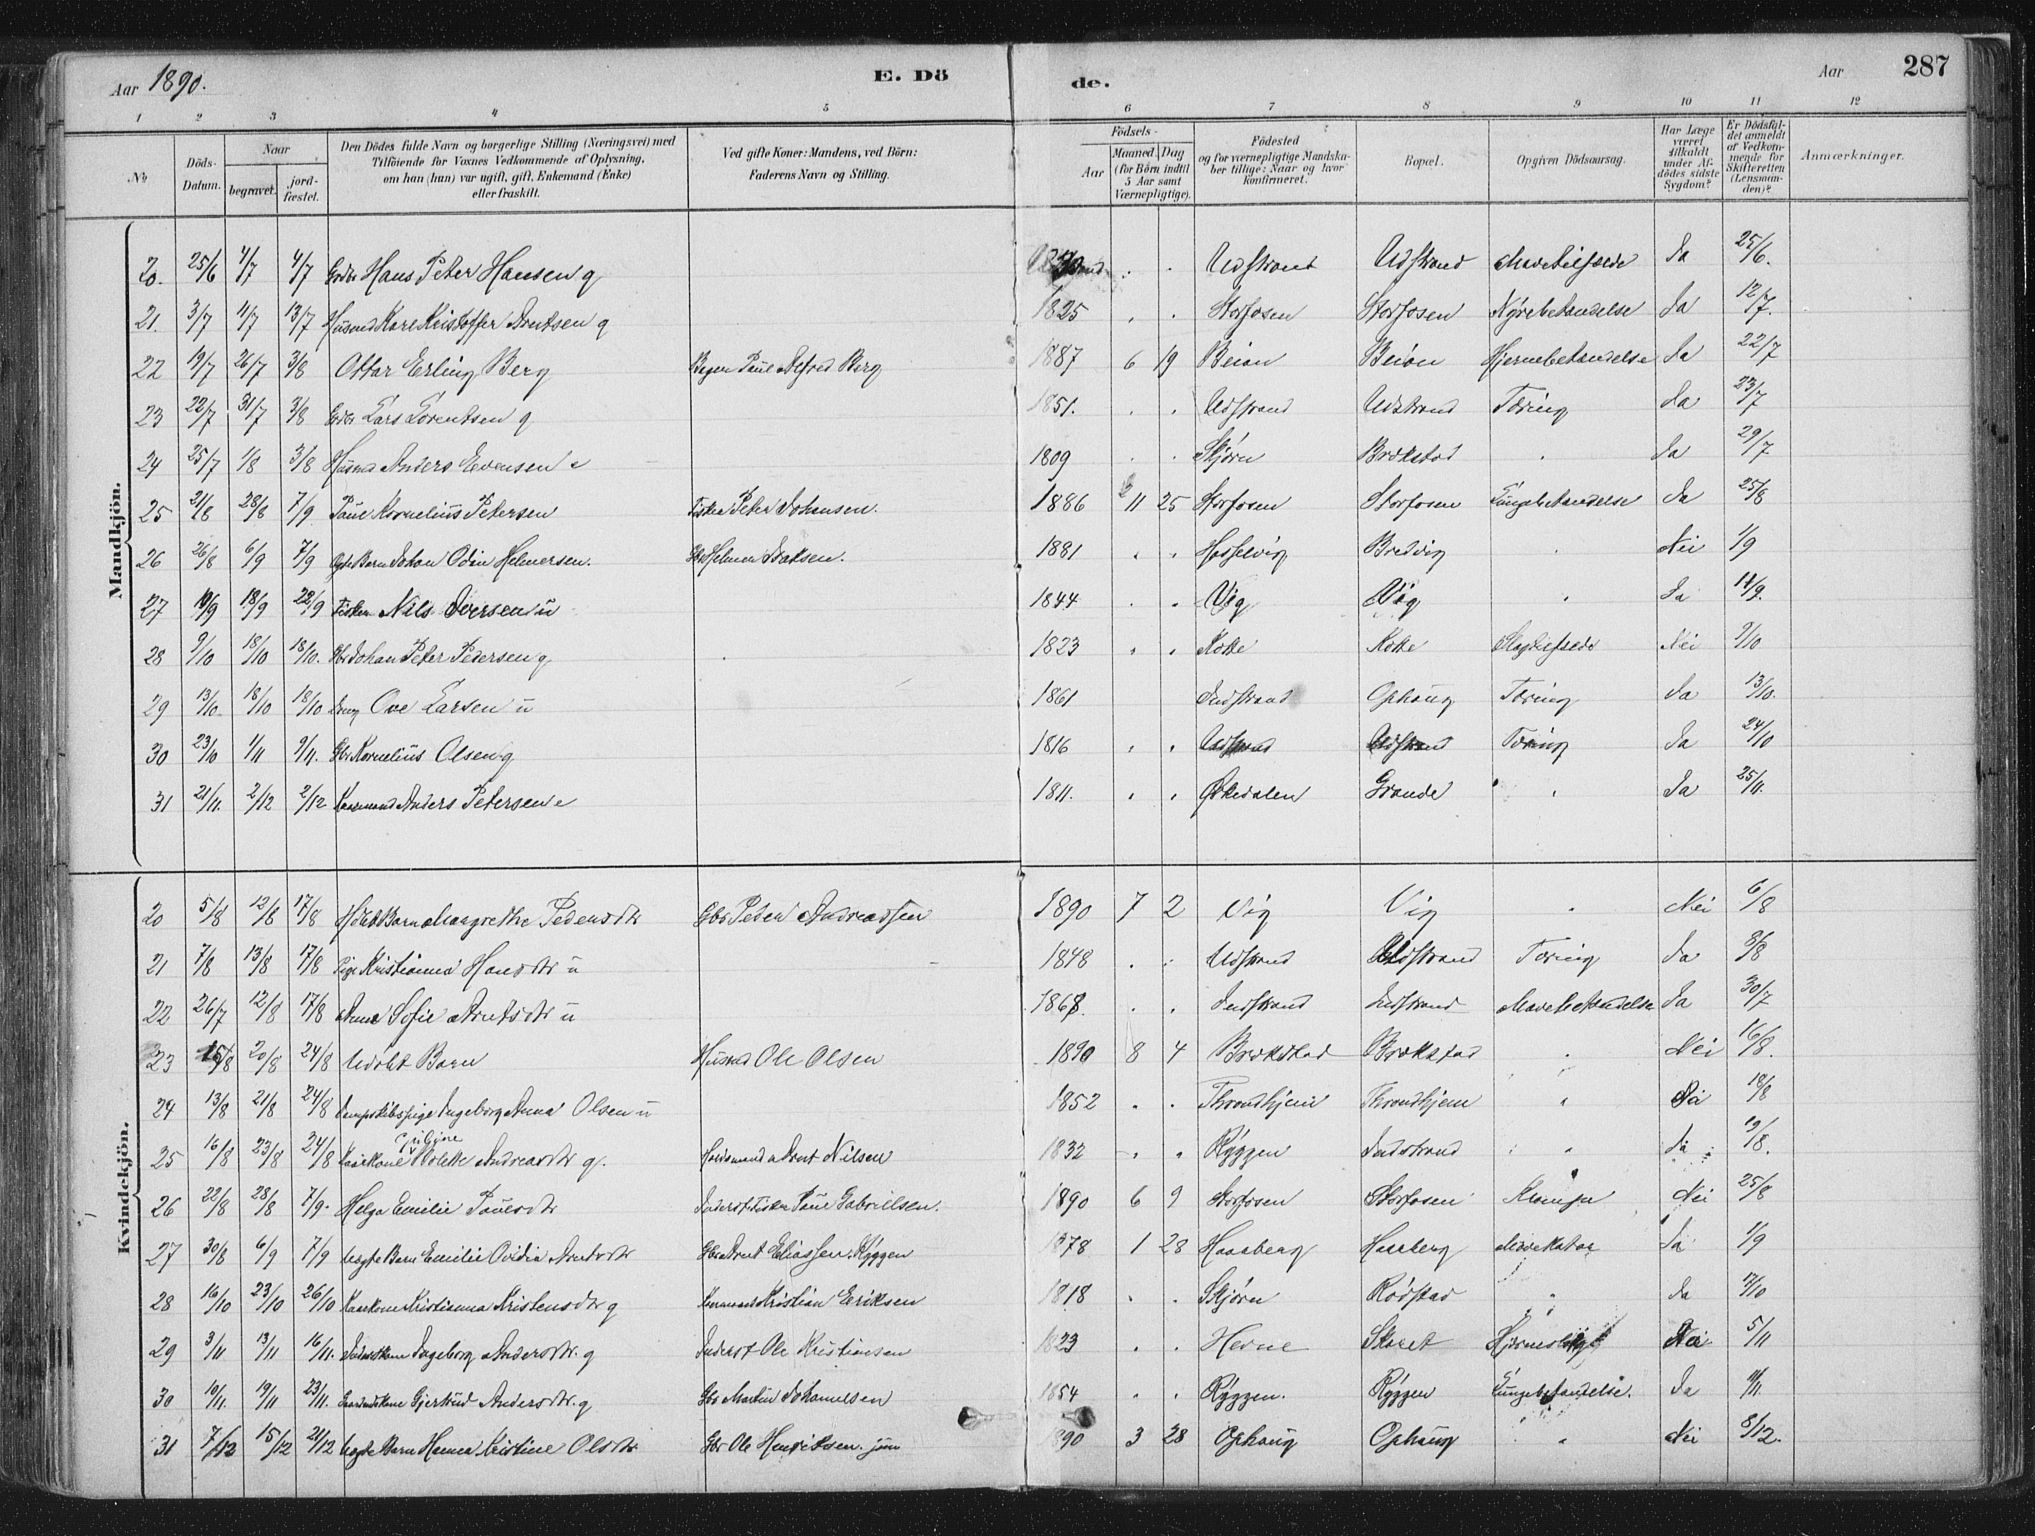 Aar 1890. E. Döde. Aar 287
1 2 3 4 5 6 7 8 9 10 11 12
No Döds-Datum. Naar begravet. jordfæstet. Den Dödes fulde Navn og borgerlige Stilling (Næringsvei) med Tilföiende for Voxnes Vedkommende af Oplysning, om han (hun) var ugift, gift, Enkemand (Enke) eller fraskilt. Ved gifte Koner: Mandens, ved Börn: Faderens Navn og Stilling. Födsels- Aar Maaned. Dag (for Börn indtil 5 Aar samt Værnepligtige). Födested og for værnepligtige Mandskaber tillige: Naar og hvor Konfirmeret. Bopæl. Opgiven Dödsaarsag. Har Læge været tilkaldt under Afdödes sidste Sygdom? Er Dödsfaldet anmeldt af Vedkommende for Skifteretten (Lensmanden)? Anmærkninger.
Mandkjön.
20. 25/6 4/7 4/7 Hans Peter Hansen g Udstrand Udstrand Ja 25/6.
21. 3/7 11/7 13/7 Husmd Karl Kristoffer Arntsen g 1825 Storfosen Storfosen Nyrebetændelse Ja 12/7.
22 19/7 26/7 3/8 Ottar Erling Berg Paul Alfred Berg 1887 6 19 Beian Beian Hjernebetændelse Ja 22/7
23 22/7 31/7 3/8 Lars Lorentsen g 1851. Udstrand Udstrand Tæring Ja 23/7
24 25/7 1/8 3/8 Husmd Anders Evensen e 1809 Skjørn Brækstad " Ja 29/7
25 21/8 28/8 7/9 Paul Kornelius Petersen Fisker Peter Johansen. 1886 11 25 Storfosen Storfosen Lungebetændelse Ja 25/8
26 26/8 6/9 7/9 Barn Johan Odin Helmersen. Gbr Helmer Isaksen. 1881 Hasselvig Bredvig " Nei 1/9
27 10/9 18/9 22/9 Fisker Nils Iversen u 1844 Vig Vig " Ja 11/9.
28 9/10 18/10 18/10. Gbr Johan Peter Pedersen g 1823 Kotte Kotte Nei 9/10
29 13/10 18/10 18/10 Ove Larsen u 1861 Indstrand Ophaug Tæring Ja 13/10.
30 23/10 1/11 9/11. Gbr Kornelius Olsen g 1816 Udstrand Udstrand Tæring Ja 24/10
31 21/11. 2/12 2/12 Kaarmand Anders Petersen e 1811. Ørkedalen Grande " Ja 25/11.
Kvindekjön.
20 5/8 12/8 17/8 Barn Maagrethe Pedersdtr Gbr Peter Andreassen 1890 7 2 Vig Vig " Nei 6/8
21 7/8 13/8 17/8 Pige Kristianna Hansdtr u 1848 Udstrand Udstrand Tæring Ja 8/8
22 26/7 12/8 17/8 Anna Sofie Arntsdtr u 1868. Indstrand Indstrand Mavebetændelse Ja 30/7
23 15/8 20/8 24/8 Udöbt Barn Husmd Ole Olsen 1890 8 4 Brækstad Brækstad " Nei 16/8.
24 13/8 21/8 24/8 Dampskibspige Ingeborg Anna Olsen u 1852 Throndhjem Throndhjem " Ja 18/8
25 16/8 23/8 24/8 Kaarkone Nolette Andreasdtr g. Kaarmand Arnt Nilsen 1832 Ryggen Indstrand " Ja 19/8.
26 22/8 28/8 7/9. Helga Emilie Paulsdtr Inderst Fisker Paul Gabrielsen. 1890 6 9 Storfosen Storfosen Krampe Nei 25/8
27 30/8 6/9 7/9 Uægte Barn Emilie Ovidia Arntsdtr Gbr Arnt Eliassen Ryggen 1878 1 28 Haaberg Haaberg Mavekatar Ja 1/9
28 16/10 23/10 26/10 Kaarkone Kristianna Kristensdtr g Kaarmand Kristian Eriksen 1818 Skjørn Rödstad " Ja 17/10
29 3/11 13/11 16/11. Inderstkone Ingeborg Andersdtr. g Inderst Ole Kristiansen 1823 Hevne Skaret Nei 5/11
30 10/11. 19/11 23/11. Gaardmdskone Gjertrud Andersdtr. g Gbr Martin Johannesen 1854 Ryggen. Ryggen Lungebetændelse. Ja 11/11.
31 7/12 15/12 21/12 Uægte Barn Hanna Kristine Olsdtr Gbr Ole Henriksen jun 1890 3 28 Ophaug Ophaug " Nei 8/12.